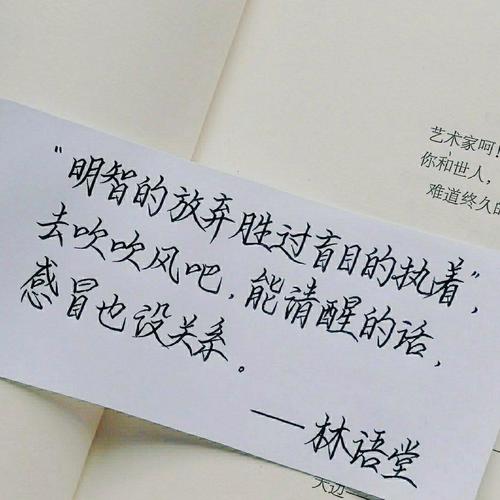 艺术家呵！
你和世人，
难道终久的
"明智的放弃胜过盲目的执着"，
去吹吹风吧，能请醒的话，
感冒也没关系。
——林语堂
大边——